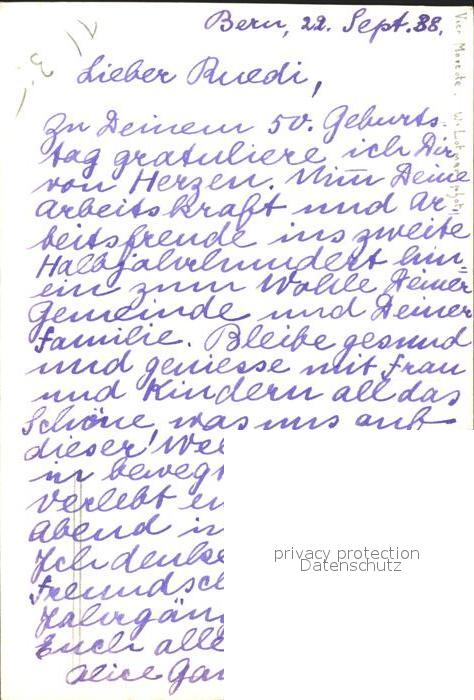 Bern, 22. Sept. 88.
Lieber Ruedi,
Zu Deinem 50. Geburts-
tag gratuliere ich Dir
von Herzen. Nimm Deine
Arbeitskraft und Ar-
beitsfreude ins zweite
Halbjahrhundert hin=
ein zum Wohle Deiner
Gemeinde und Deiner
Familie. Bleibe gesund
und geniesse mit Frau
und Kindern all das
Schöne, was uns auf
dieser Wel
in beweg
verlebt
Abend in
Ich denke
Freundsc
Jahrgän
Euch alle
Alice Ga
privacy protection
Datenschutz